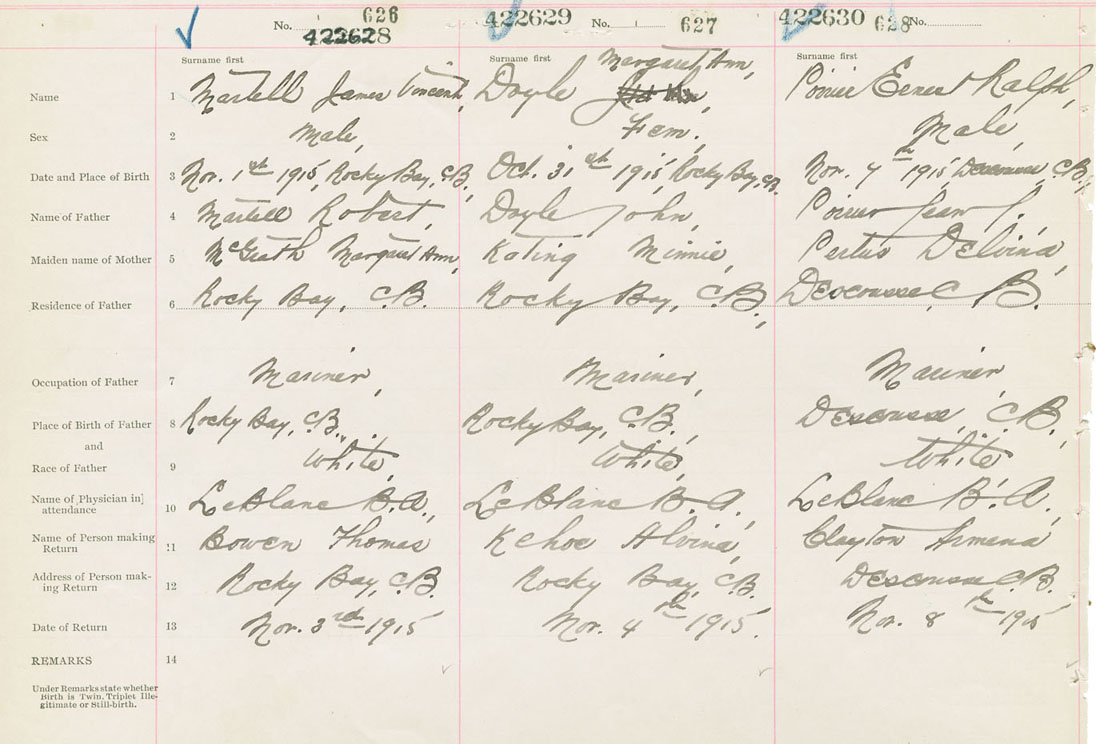 No. 626 422629 No. 627 422630 628 No.
422628
Surname first Surname first Margaret Ann, Surname first
Name 1 Martell James Vincent, Doyle Poirier Ernest Ralph,
Sex 2 Male, Fem. Male,
Date and Place of Birth 3 Nov. 1st 1915, Rocky Bay, C.B., Oct. 31st 1915, Rocky Bay, C.B. Nov. 7th 1915, Descousse C.B.,
Name of Father 4 Martell Robert, Doyle John, Poirier Jean J.
Maiden name of Mother 5 McGrath Margaret Ann, Kating Minnie, Pertus Delvina,
Residence of Father 6 Rocky Bay, C.B. Rocky Bay, C.B., Descousse, C.B.
Occupation of Father 7 Mariner, Mariner, Mariner,
Place of Birth of Father 8 Rocky Bay, C.B. Rocky Bay, C.B., Descousse, C.B.,
and
Race of Father 9 "White," "White," "White"
Name of Physician in] attendance 10 LeBlanc B.A., LeBlanc B.A., LeBlanc B.A.,
Name of Person making Return 11 Bowen Thomas Kehoe Alvina, Clayton Armena
Address of Person making Return 12 Rocky Bay, C.B. Rocky Bay, C.B. Descousse C.B.
Date of Return 13 Nov. 3rd 1915 Nov. 4th 1915. Nov. 8th 1915
REMARKS 14
Under Remarks state whether
Birth is Twin, Triplet Ille-
gitimate or Still-birth.